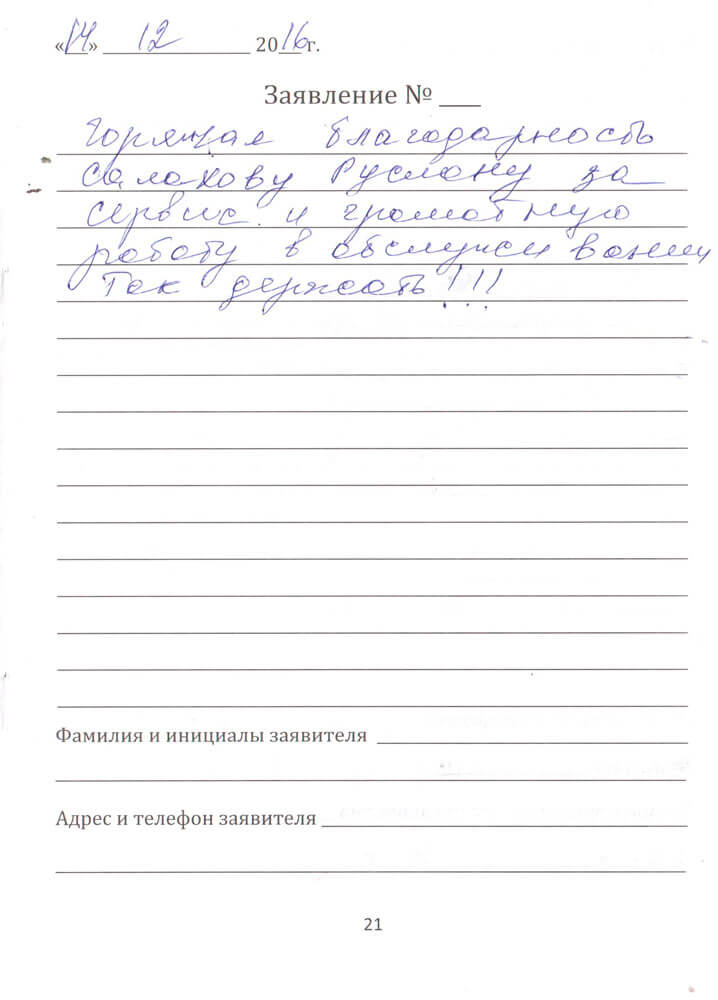 «14» 12 2016 г.
Заявление № ___
Горячая благодарность
Салахову Руслану за
сервис и грамотную
работу в обслуживании
Так держать!!!
Фамилия и инициалы заявителя
Адрес и телефон заявителя
21